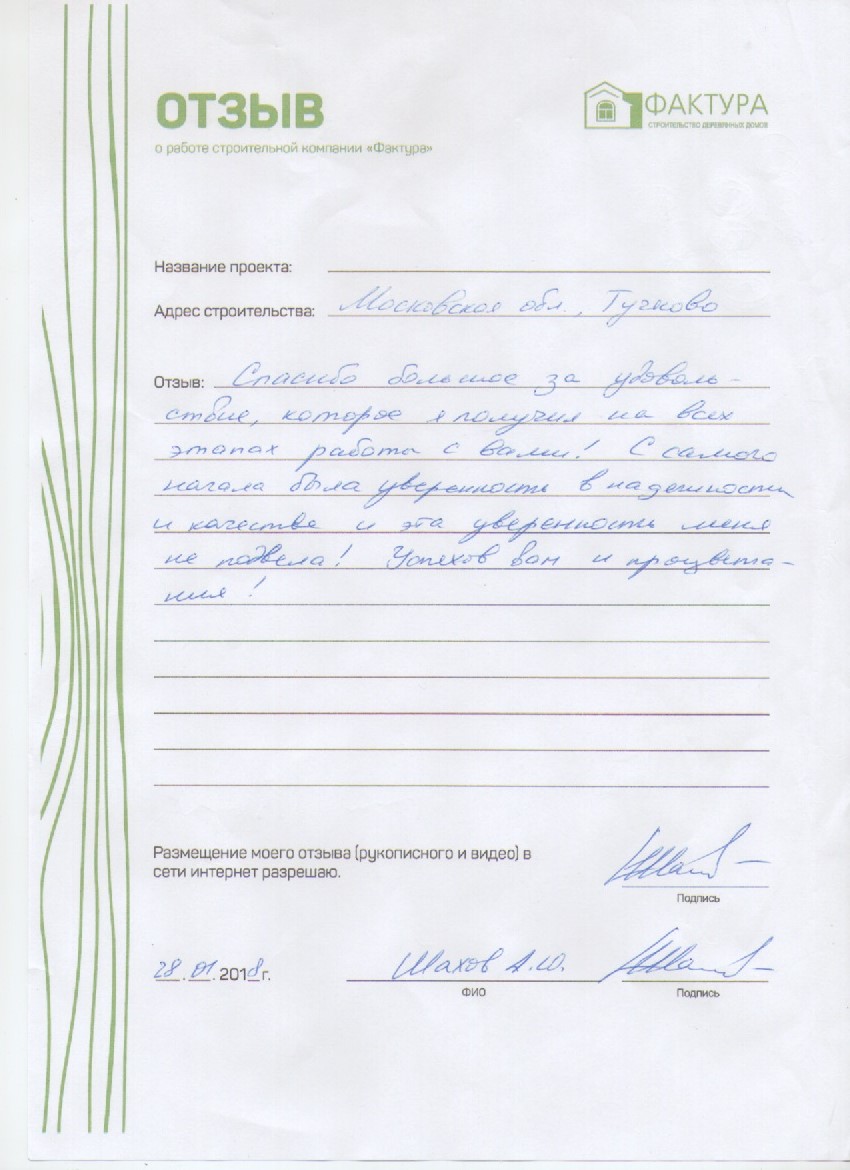 ОТЗЫВ
ФАКТУРА
СТРОИТЕЛЬСТВО ДЕРЕВЯННЫХ ДОМОВ
о работе строительной компании «Фактура»
Название проекта:
Адрес строительства: Московская обл., Тучково
Отзыв: Спасибо большое за удоволь-
ствие, которое я получил на всех
этапах работы с вами! С самого
начала была уверенность в надежности
и качестве и эта уверенность меня
не подвела! Успехов вам и процвета-
ния!
Размещение моего отзыва (рукописного и видео) в
сети интернет разрешаю.
Подпись
28.01.2018г. Шахов А.Ю.
ФИО Подпись